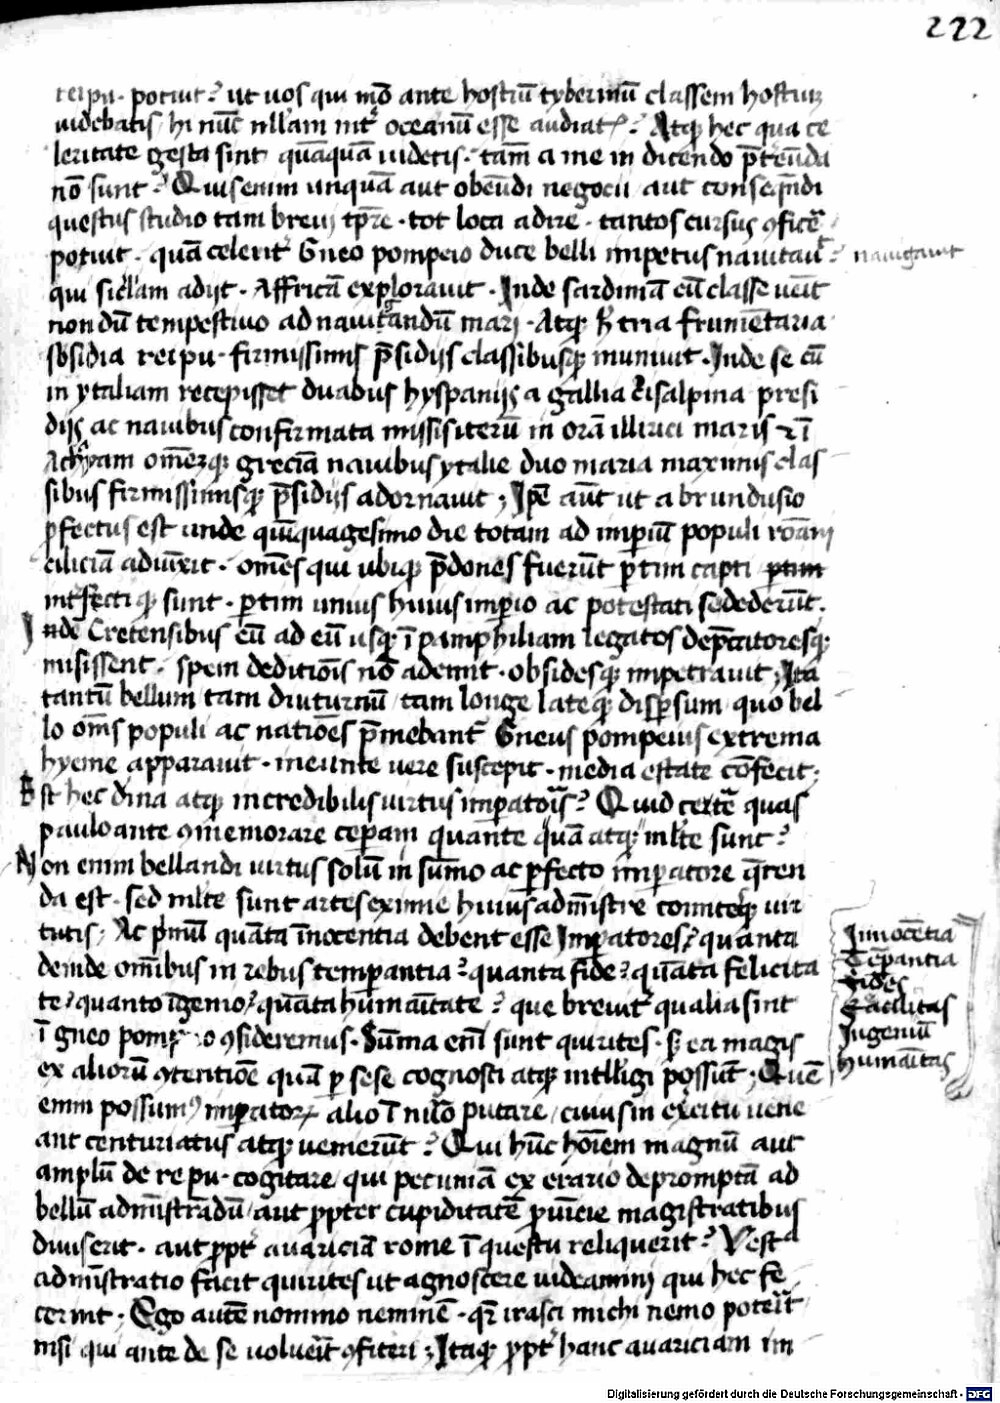 222
rei pu. potuit? ut uos qui mō ante hostiū tyberinū classem hostiū
uidebatis hi nūc nllam intͬ oceanū esse audiatꝭ? Atqꝫ hec qua ce
leritate gesta sint quāquā uidetis. tam̄ a me in dicendo p̄teūda
nō sunt? Quis enim unquā aut obeūdi negocii aut conseqn̄di
questus studio tam breui tp̄re. tot loca adire. tantos cursus ꝯficͤ
potuit. quā celeritͬ Gneo pompeio duce belli impetus nauitauͭ?
nauigauit
qui sicl̄am adijt. Affricā explorauit. Inde sardiniā cū classe ueīt
non dū tempestiuo ad nauigandū mari. Atqꝫ h̄ tria frumētaria
sb̄sidia rei pu. firmissimis p̄sidijs classibusqꝫ muniuit. Inde se cū
in ytaliam recepisset duabus hyspanijs a gallia cisalpina presi
dijs ac nauibus confirmata missis iterū in orā illirici maris ⁊ ī
Achyam om̄ezqꝫ greciā nauibus ytalie duo maria maximis clas
sibus firmissimisqꝫ p̄sidijs adornauit; Ip̄e aūt ut a brundusio
ꝓfectus est unde qūquagesimo die totam ad imꝑiū populi roāni
ciliciā adiūxit. om̄es qui ubiqꝫ p̄dones fuerūt ꝑtim capti ꝑtim
intͬfecti qꝫ sunt. ꝑtim unius huius imꝑio ac potestati se dederūt.
Inde Cretensibus cū ad eū usqꝫ ī pamphiliam legatos dep̄catoresqꝫ
misissent. spem deditiōis nō ademit. obsidesqꝫ impetrauit; Ita
tantū bellum tam diuturnū tam longe lateqꝫ disꝑsum quo bel
lo om̄s populi ac natiōes p̄mebantͬ Gneus pompeius extrema
hyeme apparauit. ineunte uere suscepit. media estate cōfecit;
Est hec diīna atqꝫ incredibilis uirtus imꝑatoīs? Quid ceterͤ quas
paulo ante ꝯmemorare ceperam quante quā atqꝫ ml̄te sunt?
Non enim bellandi uirtus solū in sūmo ac ꝑfecto imꝑatore q̄ren
da est. sed ml̄te sunt artes eximie huius adm̄istre comitesqꝫ uir
tutis; Ac p̄mū quāta īnocentia debent esse Imꝑatores? quanta
deinde om̄ibus in rebus temꝑantia? quanta fide? quāta felicita
te? quanto īgenio? quāta humaītate? que breuitͬ qualia sint
ī gneo pompeio ꝯsideremus. Sūma em̄ sunt quirites. sꝫ ea magis
ex aliorū ꝯtentiōe quā ꝑ sese cognosci atqꝫ intl̄ligi possūt; Quē
Inocētia
Tēperantia
Fides
Facilitas
Ingeniū
Humaītas
enim possumꝰ imꝑatorꝫ alio ī nūo putare cuius in ex̄citu uene
ant centuriatus atqꝫ uenierūt? Qui hūc hōīem magnū aut
amplū de re pu. cogitare, qui pecuniā ex erario depromptā ad
bellū adm̄istrādū aut ꝓpter cupiditatē ꝓuīcie magistratibus
diuiserit. aut ꝓptͬ auariciā rome ī questu reliquerit? Vestᵃ
adm̄istratio facit quirites ut agnoscere uideamini qui hec fe
cerint. Ego autē nomino neminē. qꝛ irasci michi nemo poterīt
nisi qui ante de se uoluerīt ꝯfiteri; Itaqꝫ ꝓptͬ hanc auariciam im
Digitalisierung gefördert durch die Deutsche Forschungsgemeinschaft - DFG